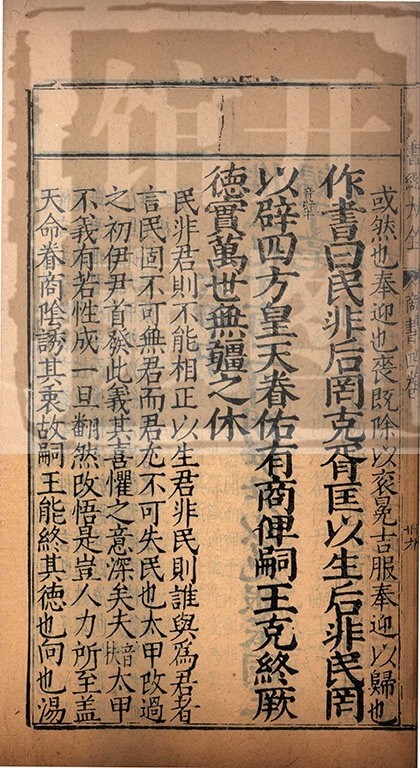 或然也奉迎也喪既除以衮冕吉服奉迎以歸也
作書曰民非后罔克胥匡以生后非民罔
以辟四方皇天眷佑有商俾嗣王克終厥
音璧
德實萬世無疆之休
民非君則不能相正以生君非民則誰與爲君者
言民固不可無君而君尤不可失民也太甲改過
之初伊尹首發此義其喜懼之意深矣夫音扶太甲
不義有若性成一旦翻然改悟是豈人力所至盖
天命眷商陰誘其衷故嗣王能終其德也向也湯